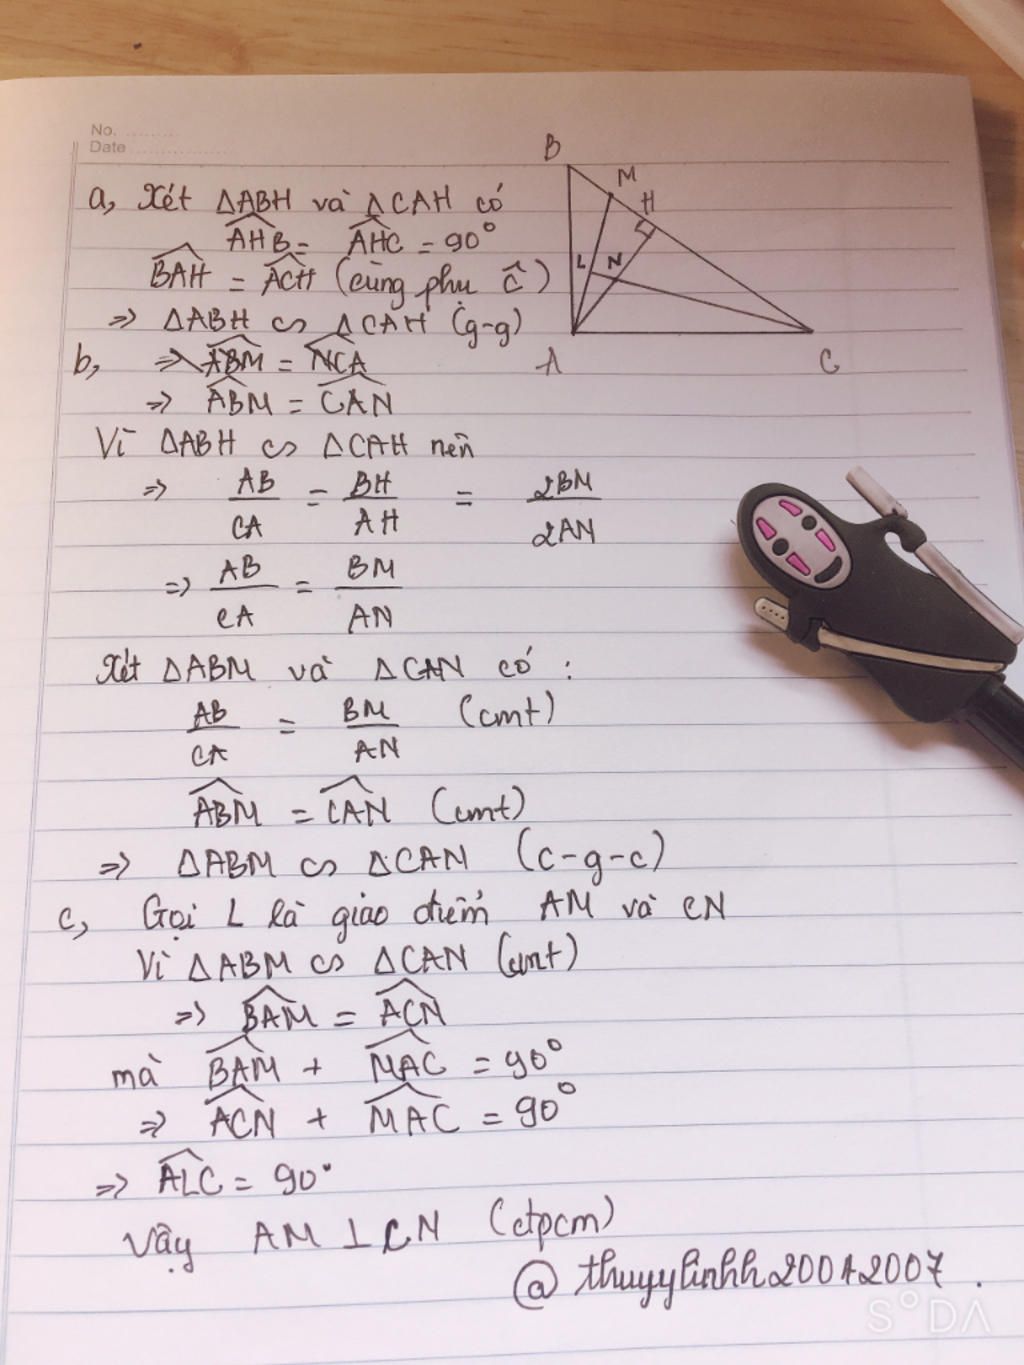 No. ..........
Date ...............
B
M
H
L N
A
C
a, Xét ΔABH và ΔCAH có
AHB = AHC = 90°
BAH = ACH (cùng phụ Ĉ)
=> ΔABH ∽ ΔCAH (g-g)
b, => ABM = NCA
=> ABM = CAN
Vì ΔABH ∽ ΔCAH nên
=> AB/CA = BH/AH = 2BM/2AN
=> AB/CA = BM/AN
Xét ΔABM và ΔCAN có :
AB/CA = BM/AN (cmt)
ABM = CAN (cmt)
=> ΔABM ∽ ΔCAN (c-g-c)
c, Gọi L là giao điểm AM và CN
Vì ΔABM ∽ ΔCAN (cmt)
=> BAM = ACN
mà BAM + MAC = 90°
=> ACN + MAC = 90°
=> ALC = 90°
Vậy AM ⊥ CN (đpcm)
@thuyylinhh20012007.
SODA